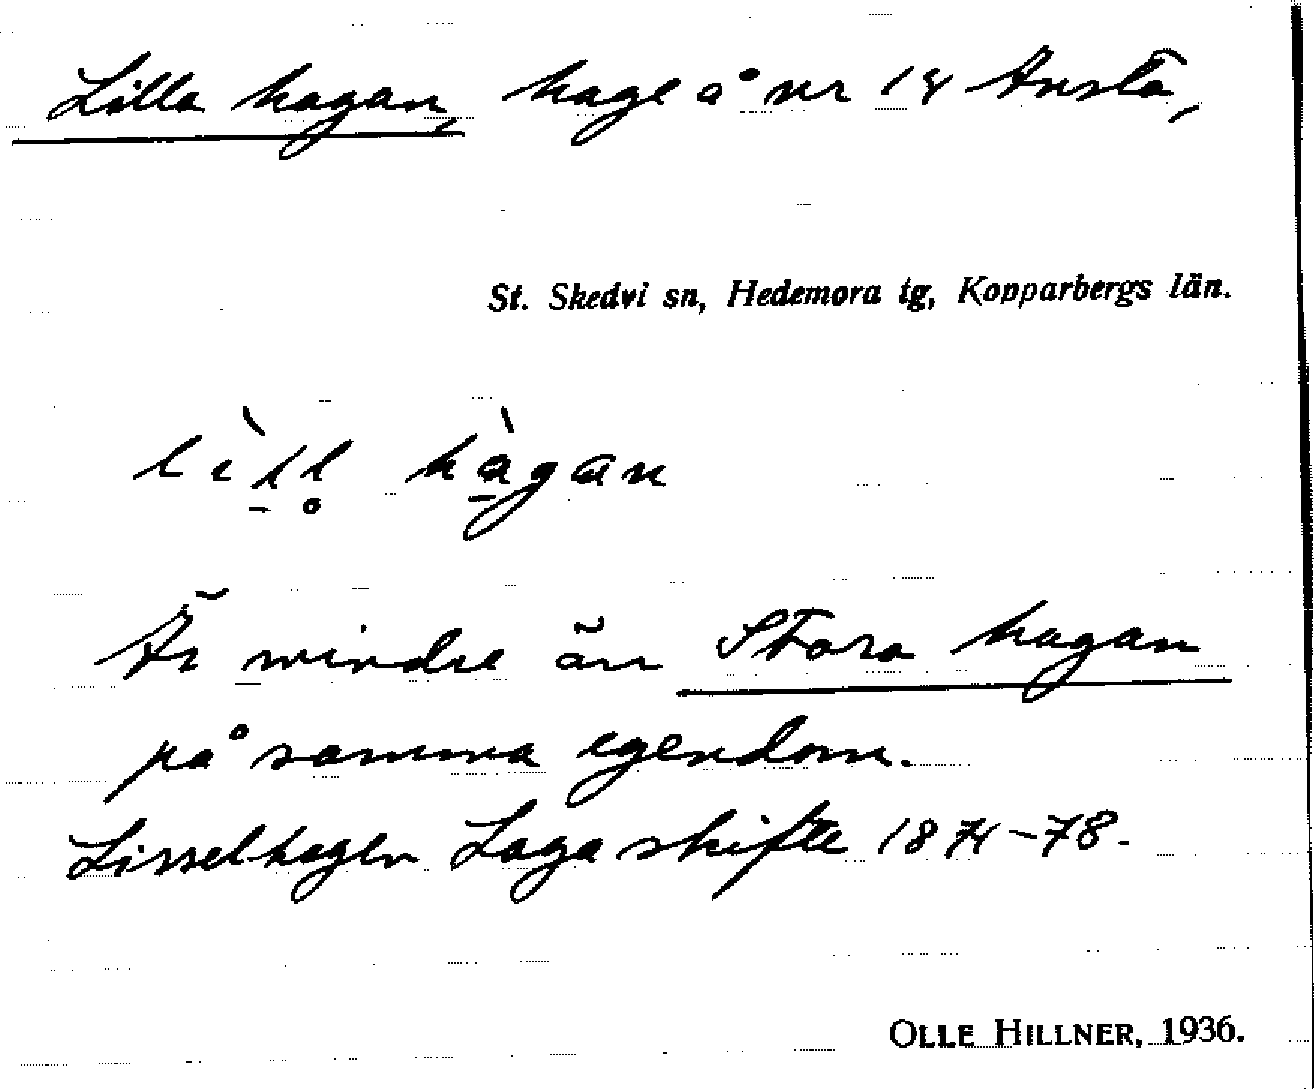 Lilla hagan, hage å nr 18 Ansta,
St. Skedvi sn, Hedemora tg, Kopparbergs län.
lìll hàgan
Är mindre än Stora hagan
på samma egendom.
Lisselhagen Laga skifte 1874-78.
OLLE HILLNER, 1936.